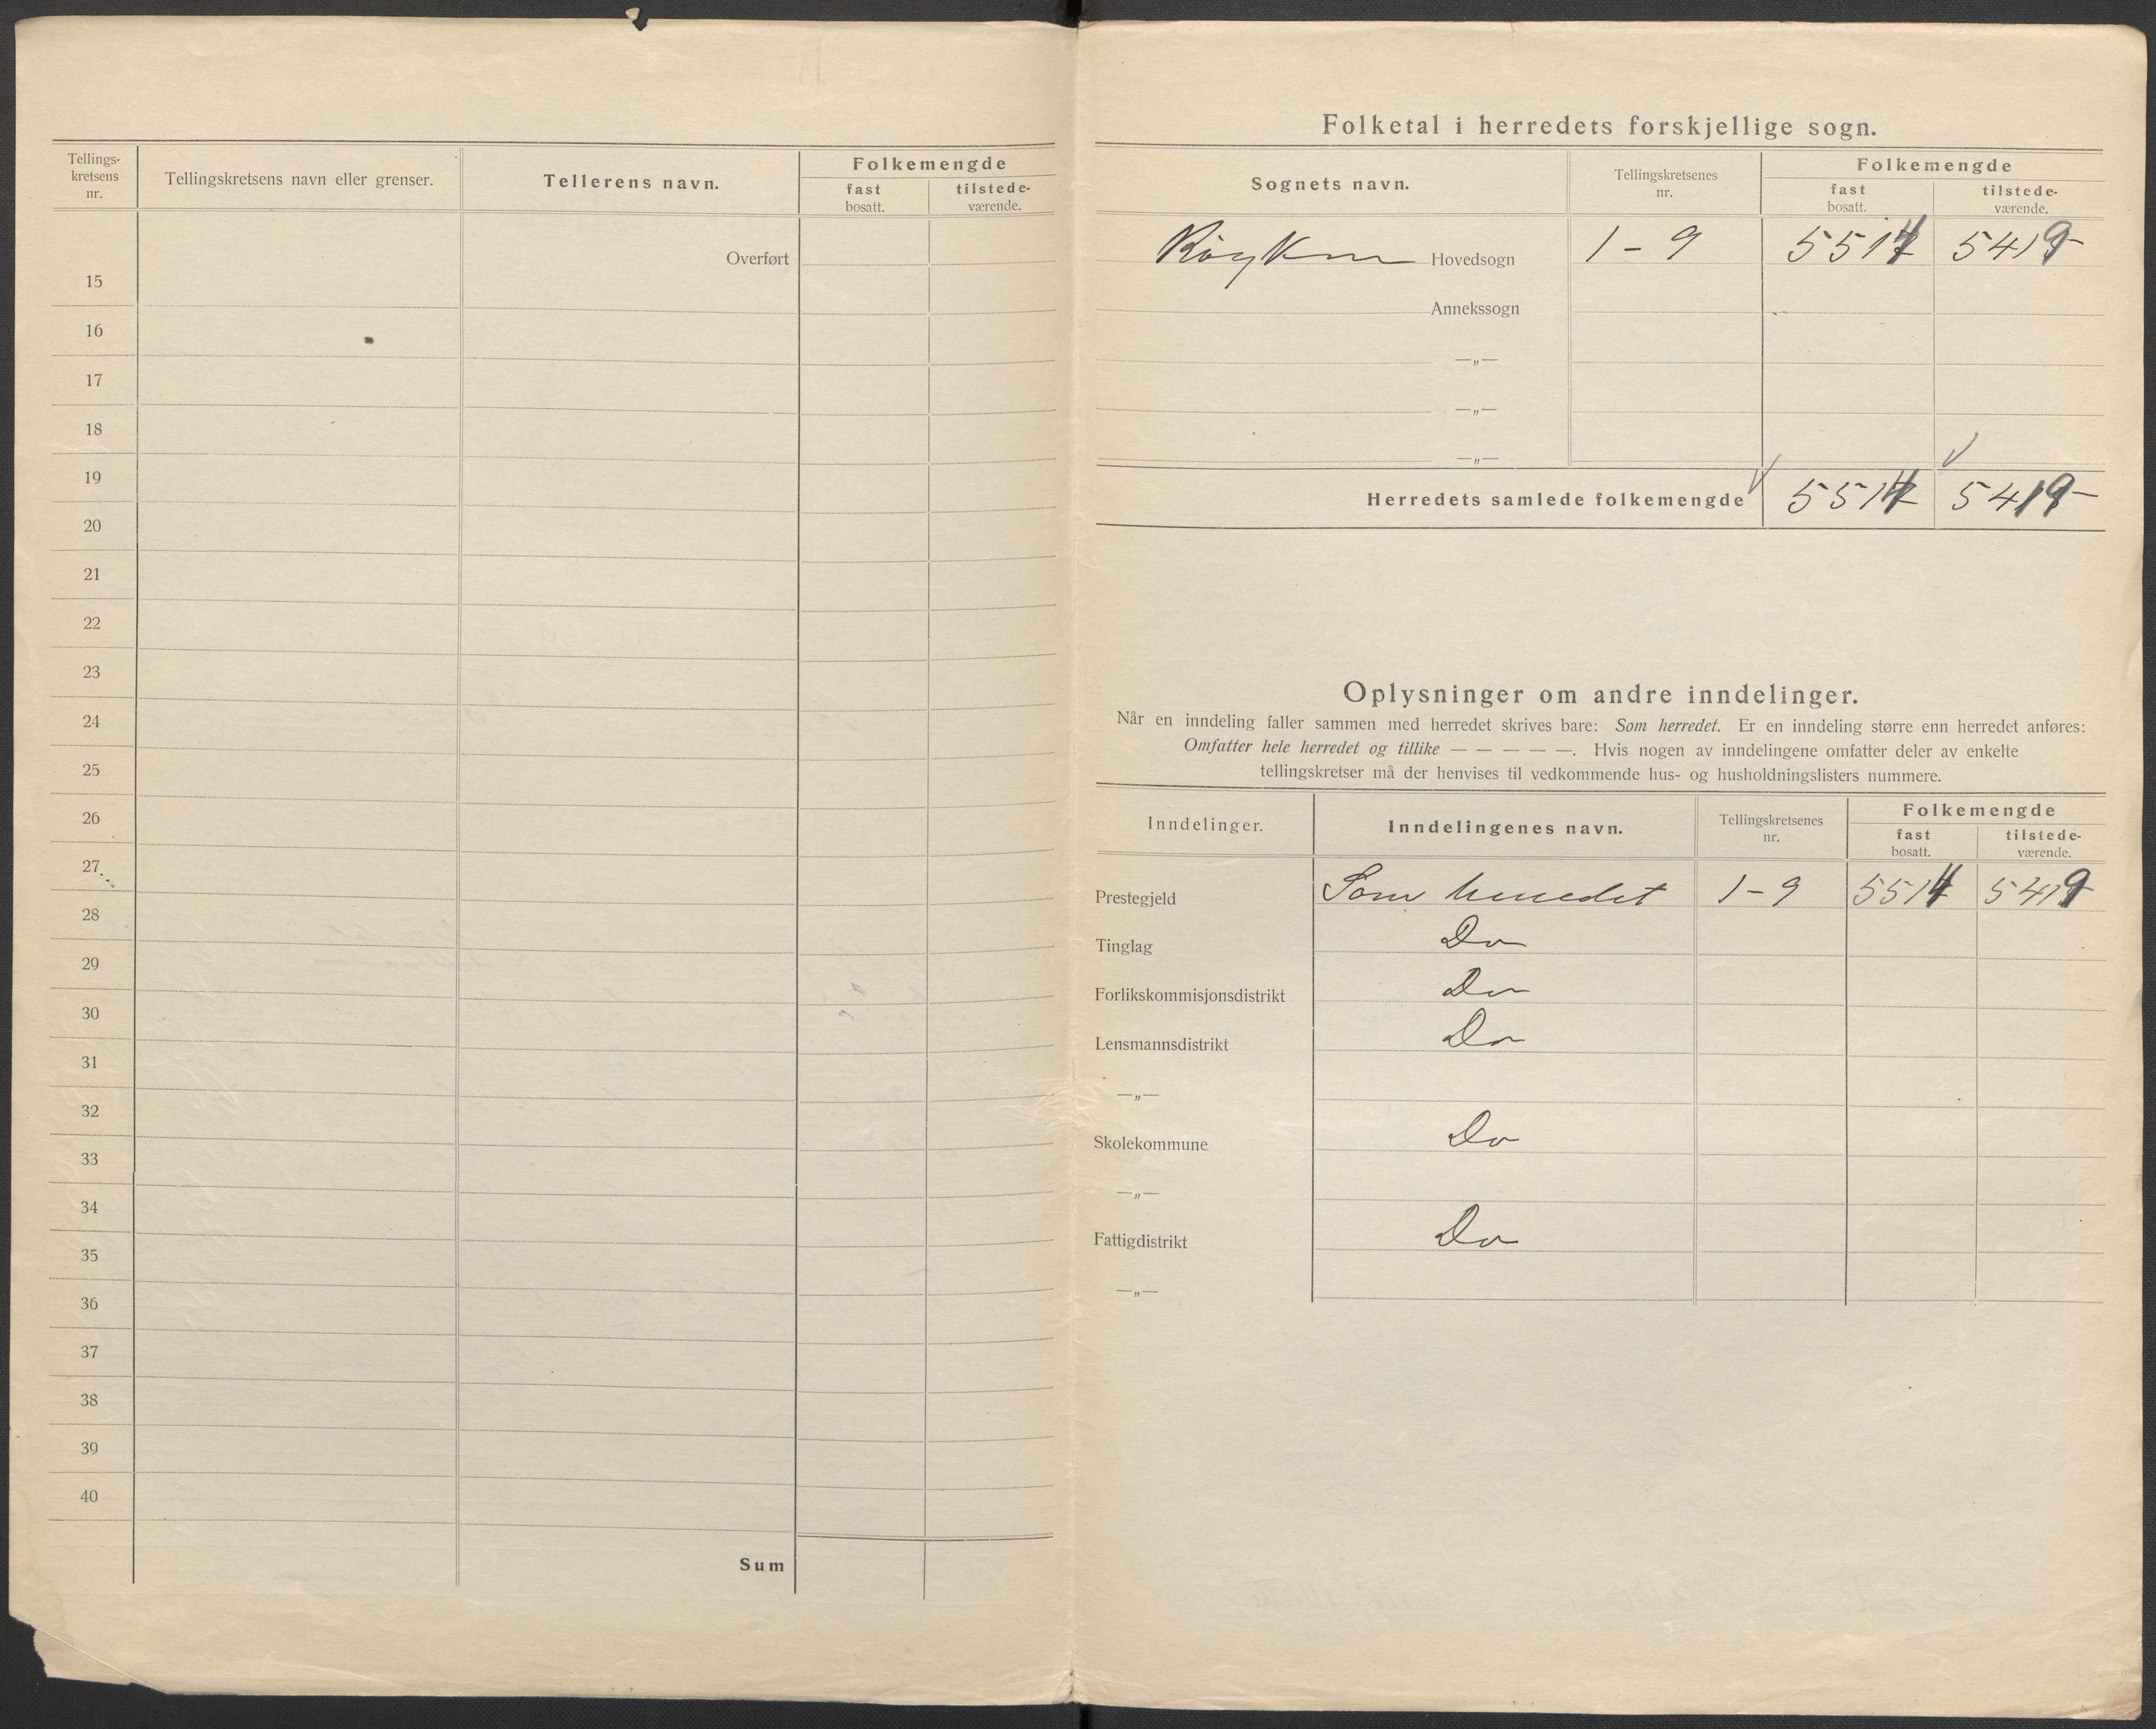 Tellings-
kretsens
nr.
Tellingskretsens navn eller grenser.
Tellerens navn.
Folkemengde
fast
bosatt.
tilstede-
værende.
Overført
15
16
17
18
19
20
21
22
23
24
25
26
27
28
29
30
31
32
33
34
35
36
37
38
39
40
Sum
Folketal i herredets forskjellige sogn.
Sognets navn.
Tellingskretsenes
nr.
Folkemengde
fast
bosatt.
tilstede-
værende.
Røyken Hovedsogn 1-9 5514 5419
Annekssogn
—„—
—„—
—„—
Herredets samlede folkemengde 5514 5419
Oplysninger om andre inndelinger.
Når en inndeling faller sammen med herredet skrives bare: Som herredet. Er en inndeling større enn herredet anføres:
Omfatter hele herredet og tillike — — — — —. Hvis nogen av inndelingene omfatter deler av enkelte
tellingskretser må der henvises til vedkommende hus- og husholdningslisters nummere.
Inndelinger.
Inndelingenes navn.
Tellingskretsenes
nr.
Folkemengde
fast
bosatt.
tilstede-
værende.
Prestegjeld Som herredet 1-9 5514 5419
Tinglag Do
Forlikskommisjonsdistrikt Do
Lensmannsdistrikt Do
—„—
Skolekommune Do
—„—
Fattigdistrikt Do
—„—